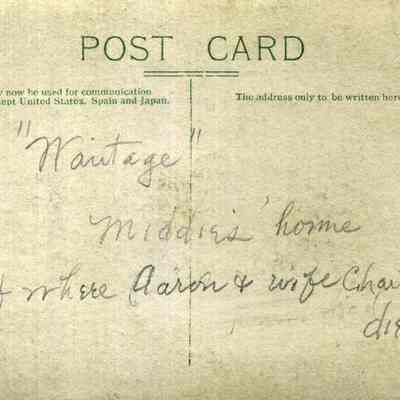 POST CARD
now be used for communication
ept United States, Spain and Japan.
The address only to be written here
"Wantage"
Middie's' home
where Aaron & wife Char
die